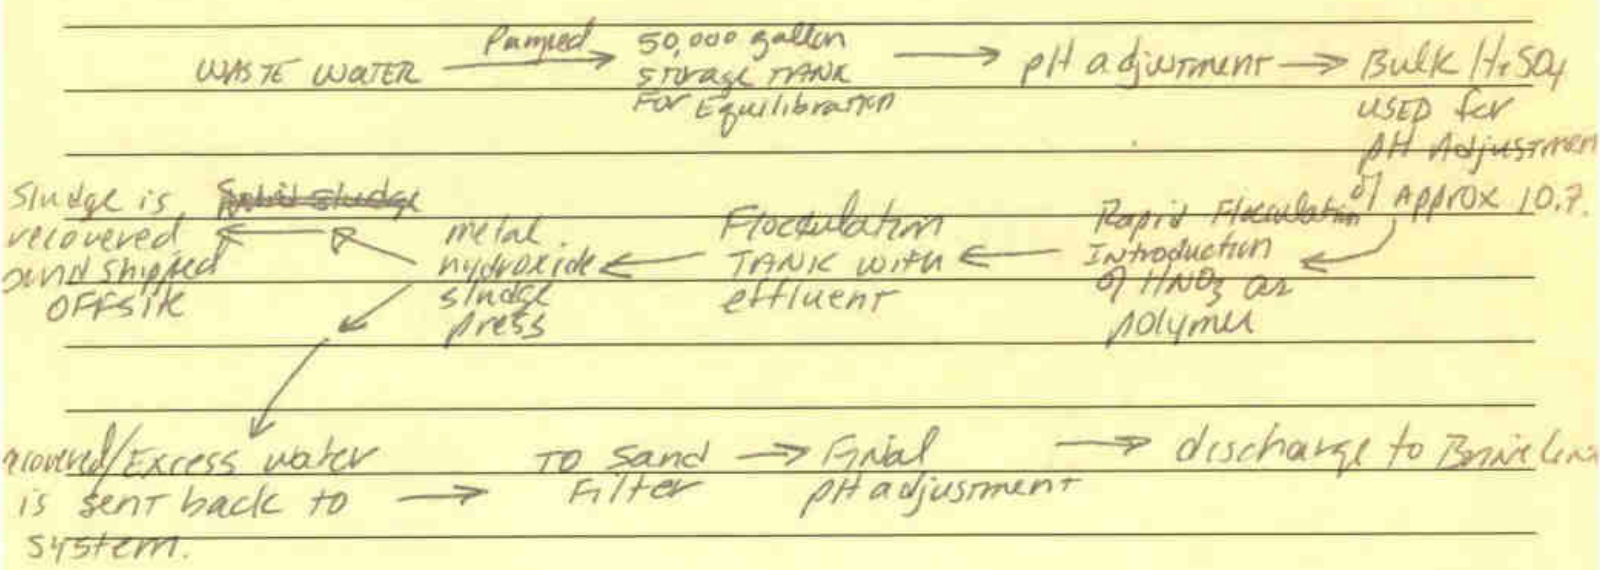 WASTE WATER
Pumped
50,000 gallon
storage TANK
For Equilibration
pH adjustment
Bulk H2SO4
USED for
pH Adjustmen
of Approx 10.7.
Rapid Flocculation
Introduction
of HNO3 as
polymer
Flocculation
TANK with
effluent
metal
hydroxide
sludge
press
Sludge is
recovered
and shipped
OFFSITE
recovered/Excess water
is sent back to
system.
TO Sand
Filter
Final
pH adjustment
discharge to Brine Line